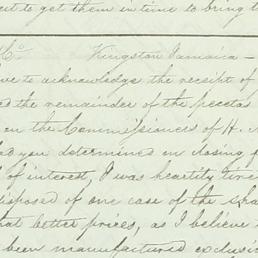 out to get them in time to bring t
& Co Kingston Jamaica –
ve to acknowledge the receipt of
ed the remainder of the pecetas
on the Commissioners of H. 
had you determined on closing
of interest, I was heartily tire
disposed of one case of the Sha
that better prices, as I believe
been manufactured exclusiv